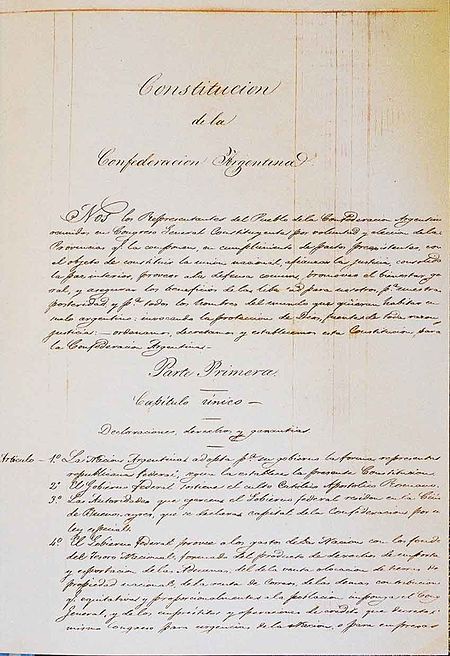 Constitucion
de la
Confederacion Argentina
Nos los Representantes del Pueblo de la Confederacion Argentina
reunidos en Congreso General Constituyente por voluntad y eleccion de las
Provincias q.e la componen, en cumplimiento de pactos preexistentes, con
el objeto de constituir la union nacional, afianzar la justicia, consolidar
la paz interior, proveer a la defensa comun, promover el bienestar ge
ral, y asegurar los beneficios de la libertad para nosotros, p.a nuestra
posteridad y p.a todos los hombres del mundo que quieran habitar en
suelo argentino: invocando la proteccion de Dios, fuente de toda razon y
justicia: ordenamos, decretamos y establecemos esta Constitucion, para
la Confederacion Argentina.
Parte Primera
Capitulo único
Declaraciones, derechos y garantias
Articulo - 1.º La Nacion Argentina adopta p.a su gobierno la forma representativa
republicana federal, segun la establece la presente Constitucion.
2.º El Gobierno Federal sostiene el culto Catolico Apostolico Romano.
3.º Las Autoridades que ejercen el Gobierno federal residen en la Ciudad
de Buenos Ayres, que se declara capital de la Confederacion por una
ley especial.
4.º El Gobierno Federal provee a los gastos de la Nacion con los fondos
del Tesoro Nacional, formado del producto de derechos de importacion
y esportacion de las Aduanas, del de la venta o locacion de tierras de
propiedad nacional, de la renta de Correos, de las demas contribuciones
q.e equitativa y proporcionalmente a la poblacion imponga el Congreso
General, y de los emprestitos y operaciones de credito que decrete el
mismo Congreso para urgencias de la Nacion, o para empresas